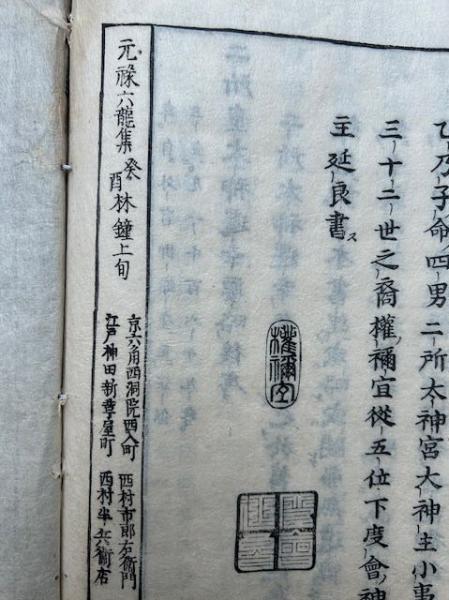 乙乃子命四男二所太神宮大神主小事
三十二世之裔權禰宜從五位下度會神
主延良書ス
權禰宜
元祿六龍集癸酉林鐘上旬
京六角西洞院西入町 西村市郎右衛門
江戸神田新革屋町 西村半兵衛店